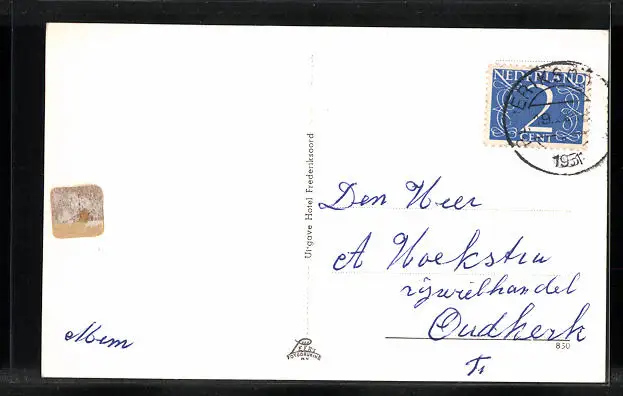 NEDERLAND
2
CENT
195
Uitgave Hotel Frederiksoord
Den Heer
A Hoekstra
rijwielhandel
Oudkerk
Fr
Mem
FOTODRUKKING
N.V.
850